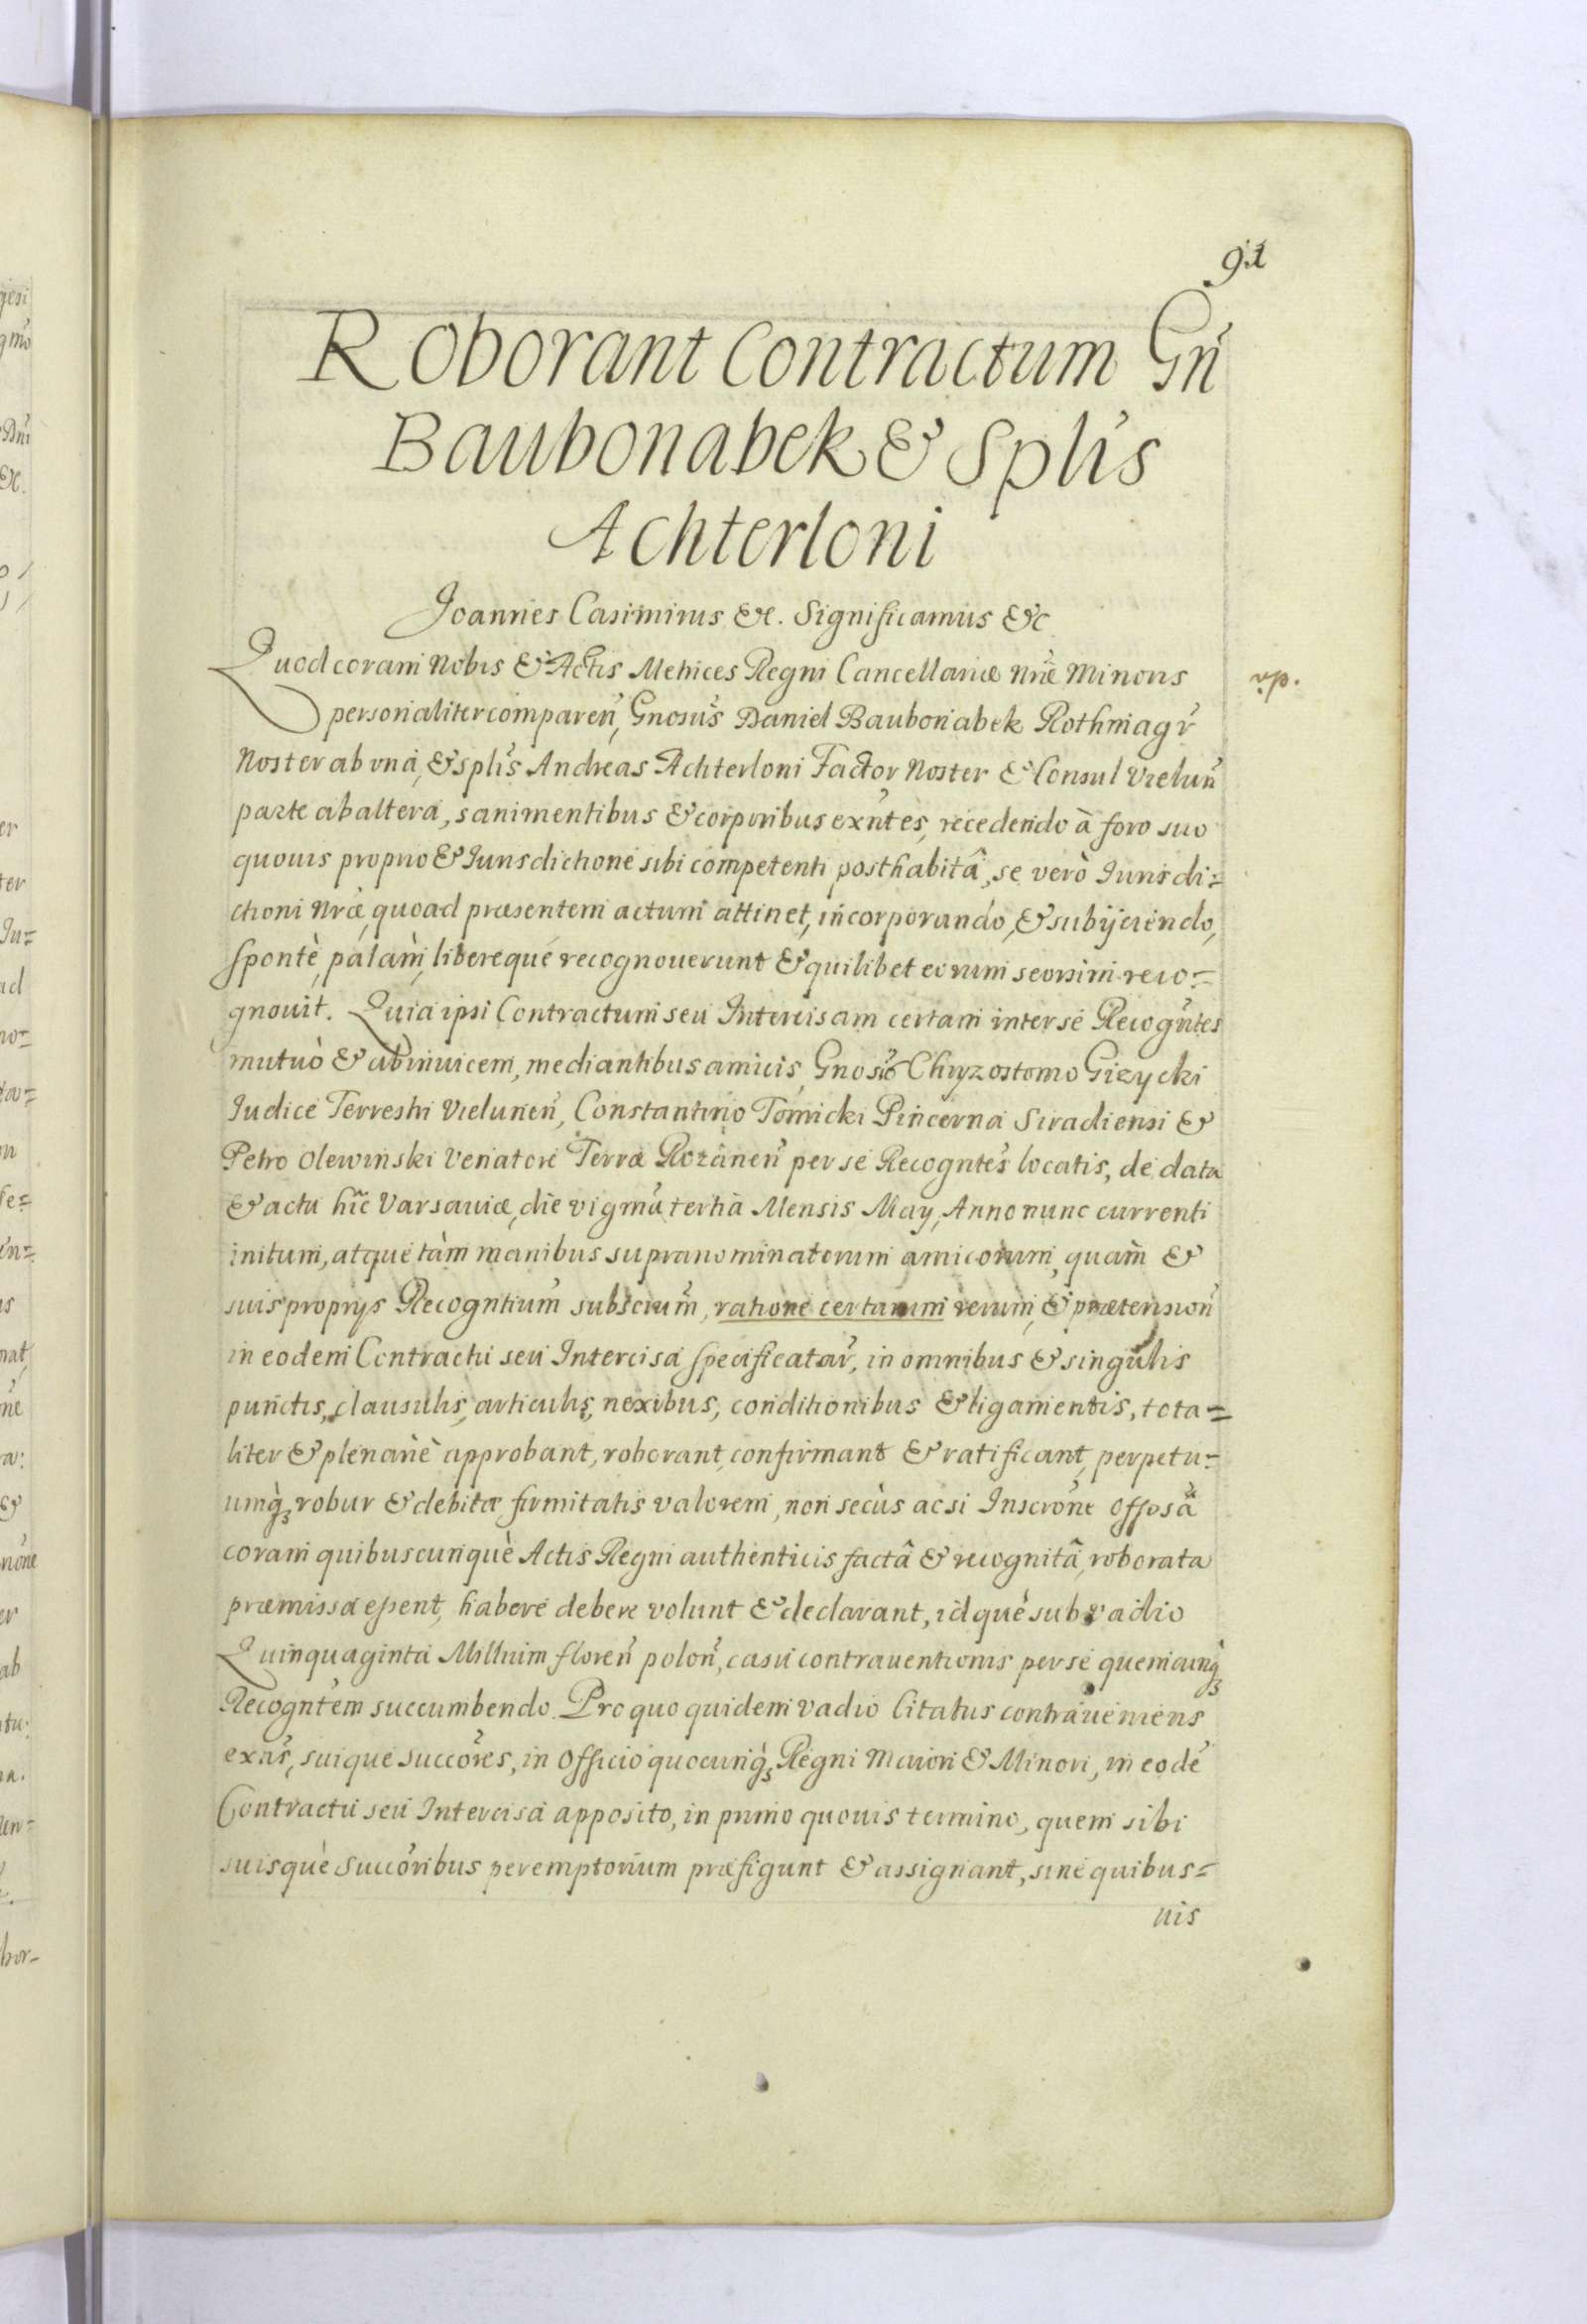 91
Roborant Contractum Gn̄
Baubonabek & Splı̄s
Achterloni
Joannes Casimirus &c. Significamus &c
Quod coram Nobis & Actis Metrices Regni Cancellariæ Nr̄æ Minoris
personaliter comparen̄, Gnosus̄ Daniel Baubonabek Rothmagr̄
Noster ab vna, & splı̄s Andreas Achterloni Factor Noster & Consul Vielun̄
parte ab altera, sani mentibus & corporibus exn̄tes, recedendo à foro suo
quouis proprio & Iurisdictione sibi competenti posthabitâ, se verò Iurisdi=
ctioni Nr̄æ, quoad præsentem actum attinet, incorporando, & subijciendo,
sponte, palàm, libereque recognouerunt & quilibet eorum seorsim reco=
gnouit. Quia ipsi Contractum seu Intercisam certam inter se Recogn̄tes
mutuò & abinuicem, mediantibus amicis, Gnosis̄ Chryzostomo Gizycki
Iudice Terrestri Vielunen̄, Constantino Tomicki Pincerna Siradiensi &
Petro Olewinski Venatore Terræ Rozanen̄ per se Recogntes̄ locatis, de data
& actu hı̄c Varsauiæ, die vigm̄a tertia Mensis May, Anno nunc currenti
initum, atque tàm manibus supranominatorum amicorum, quam &
suis proprijs Recogntium̄ subscrium̄, ratione certarum rerum, & prætension̄
in eodem Contractu seu Intercisa specificatar̄, in omnibus & singulis
punctis, clausulis, articulis, nexibus, conditionibus & ligamentis, tota=
liter & plenariè approbant, roborant, confirmant & ratificant, perpetu=
umq̀ꝫ robur & debitæ firmitatis valorem, non secùs ac si Inscrōne Offosâ
coram quibuscunquè Actis Regni authenticis factâ & recognitâ, roborata
præmissa essent, habere debere volunt & declarant, idquè sub vadio
Quinquaginta Millium floren̄ polon̄, casu contrauentionis per se quemcunq̀ꝫ
Recogntem̄ succumbendo. Pro quo quidem vadio Citatus contraueniens
exn̄s, suique succōres, in Officio quocunq̀ꝫ Regni Maiori & Minori, in eodē
Contractu seu Intercisa apposito, in primo quouis termino, quem sibi
suisquè Succōribus peremptorium præfigunt & assignant, sine quibus=
uis